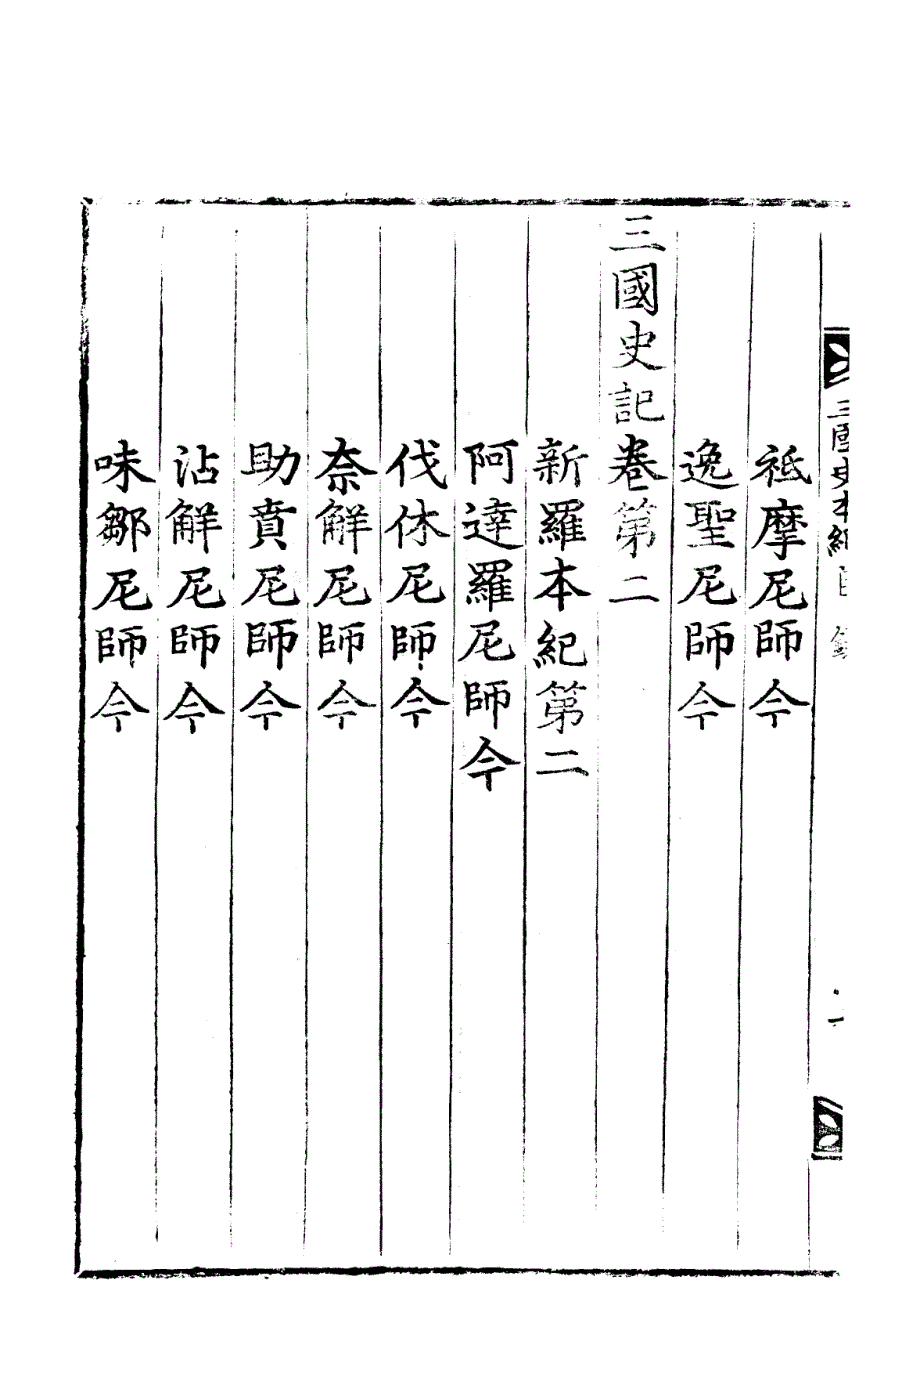 三國史本紀目錄
一
祗摩尼師今
逸聖尼師今
三國史記卷第二
新羅本紀第二
阿達羅尼師今
伐休尼師今
奈解尼師今
助賁尼師今
沾解尼師今
味鄒尼師今